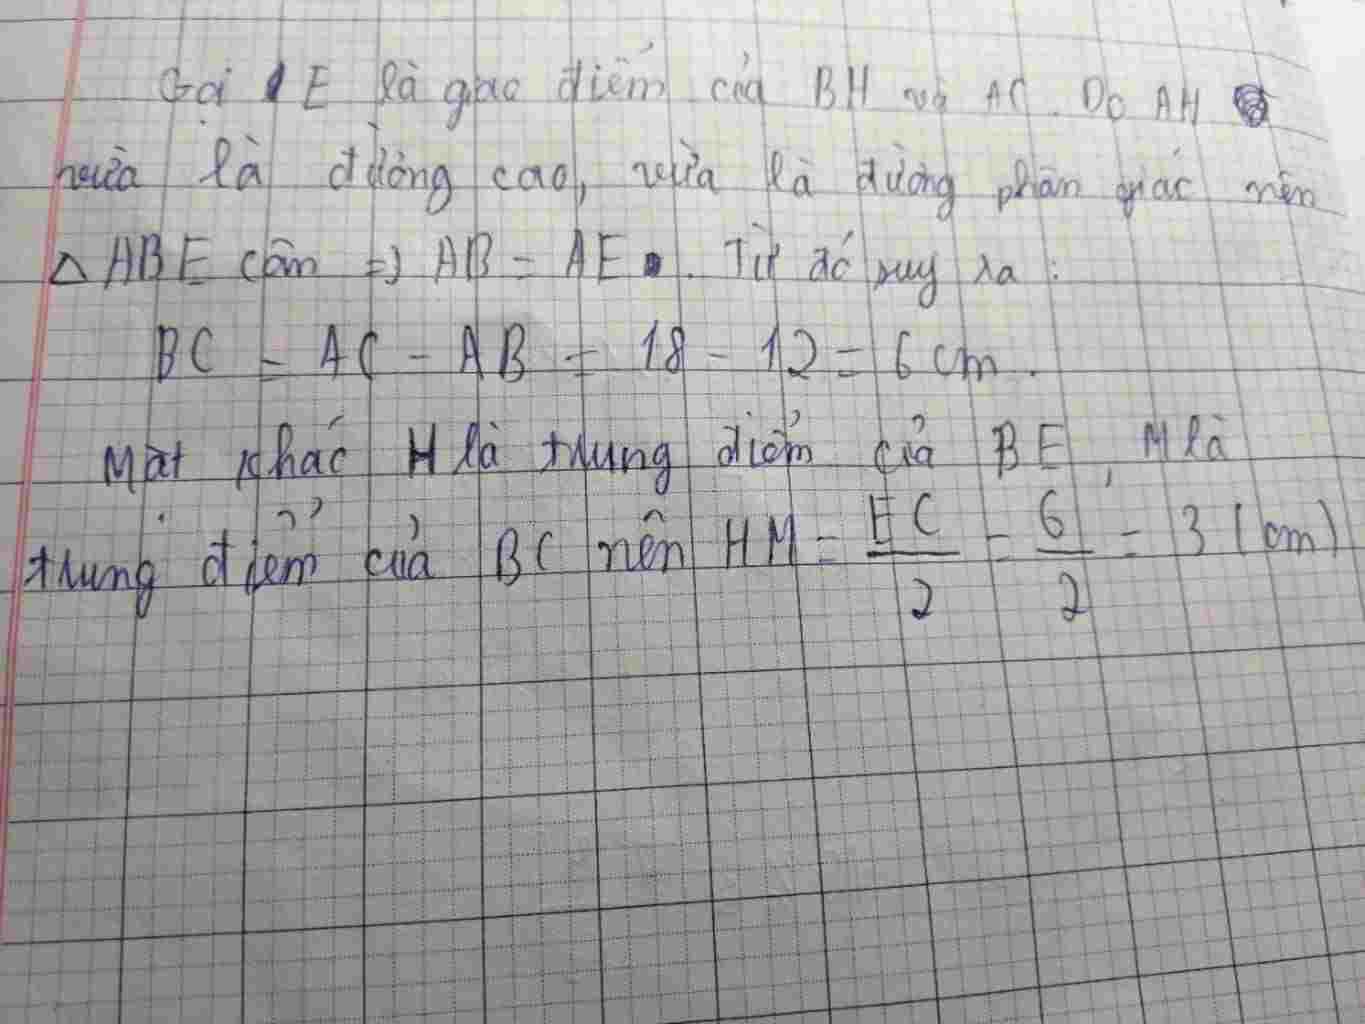 Gọi E là giao điểm của BH và AC. Do AH
vừa là đường cao, vừa là đường phân giác nên
△ ABE cân => AB = AE. Từ đó suy ra :
BC = AC - AB = 18 - 12 = 6 cm.
Mặt khác H là trung điểm của BE, M là
trung điểm của BC nên HM = EC/2 = 6/2 = 3 (cm)